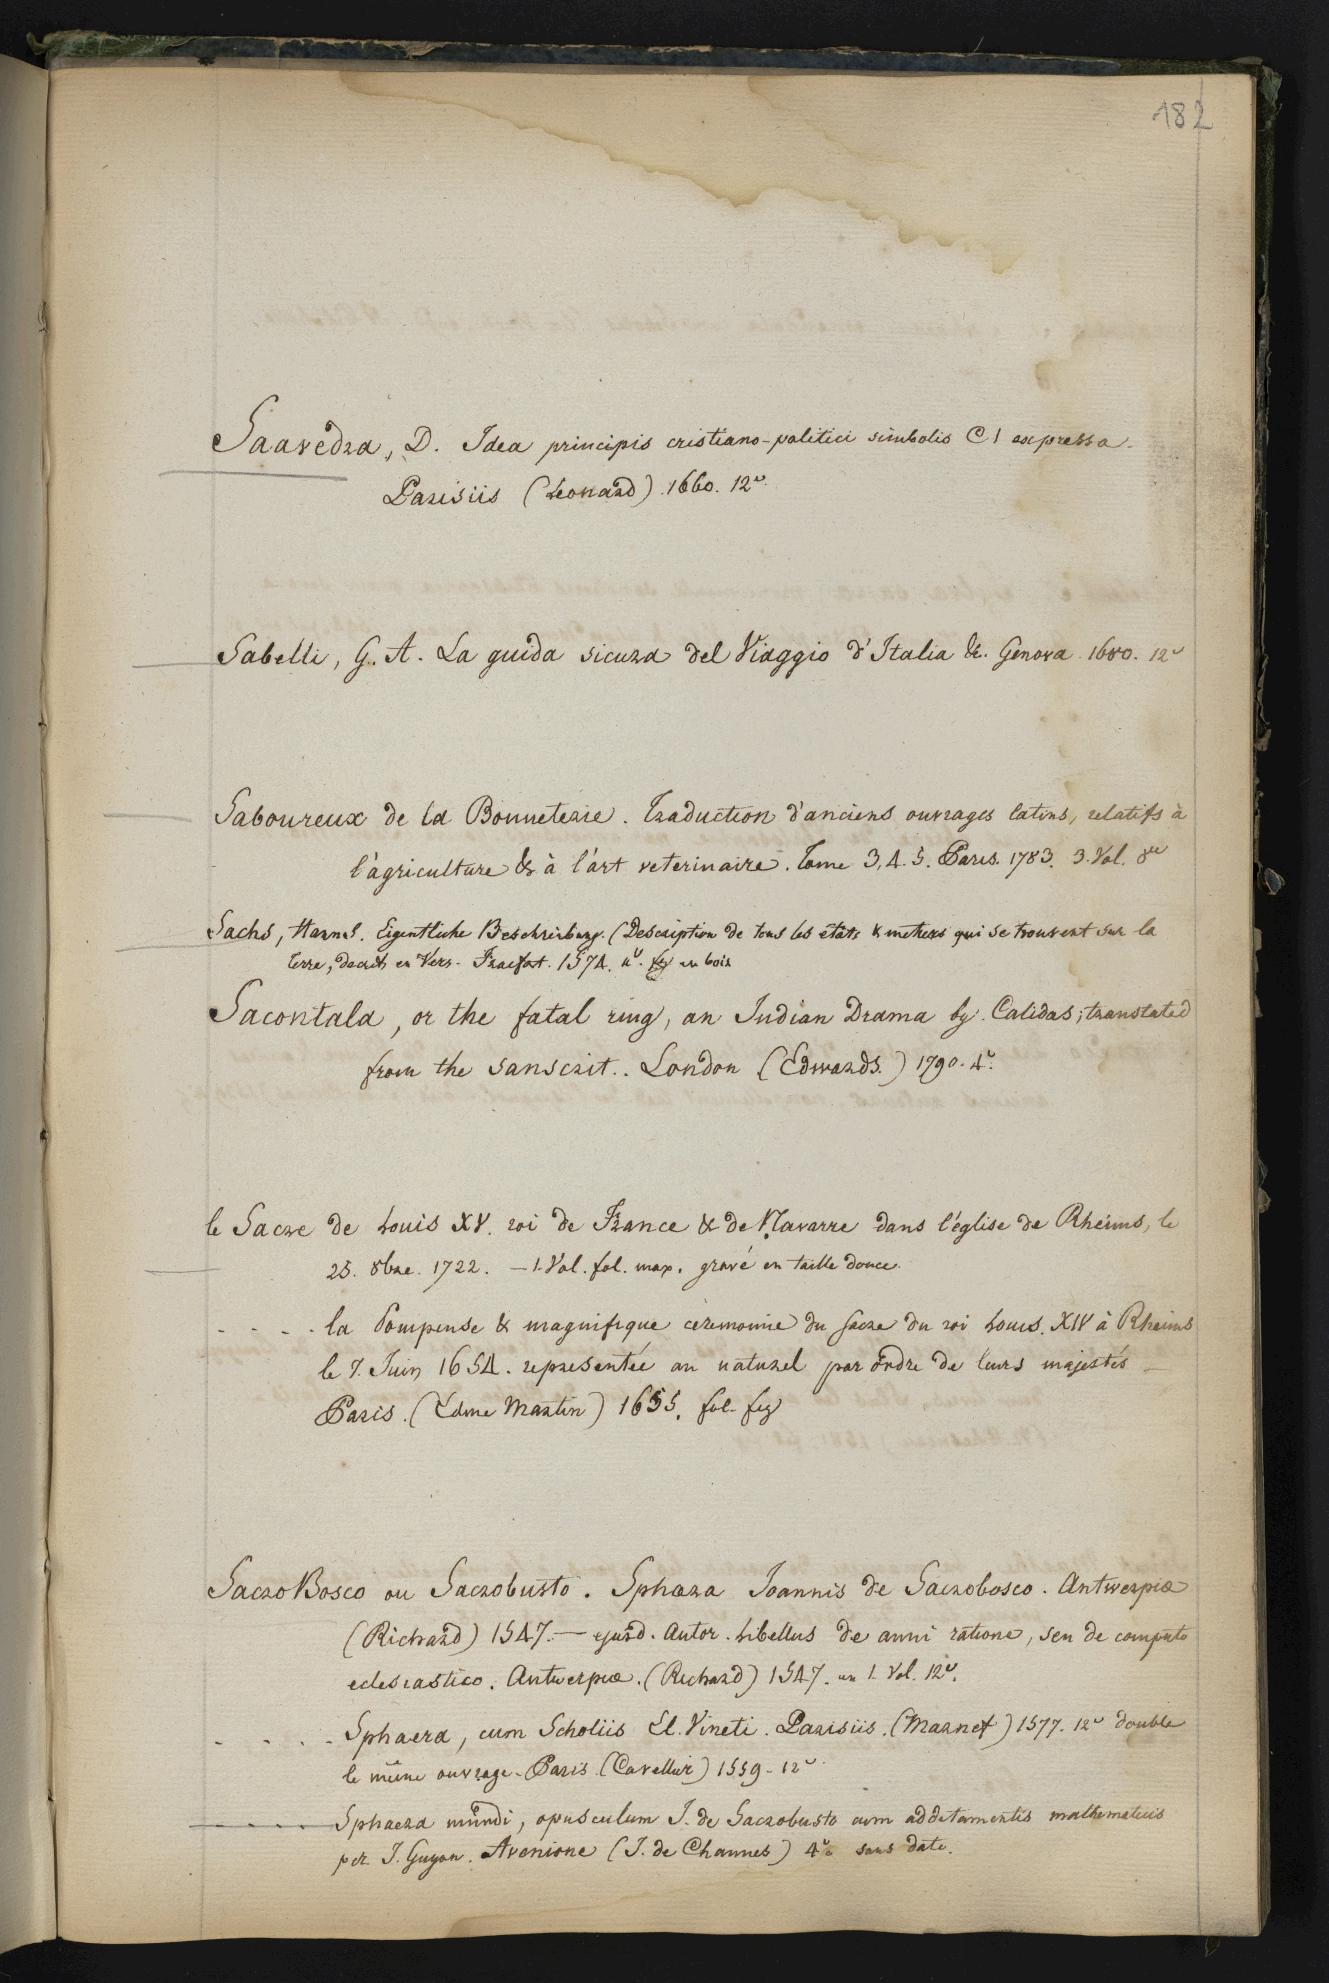 182
Saavedra, D. Idea principis cristiano-politici simbolis CI expressa.
Parisiis (Leonard) 1660. 12º
Sabelli, G. A. La guida sicura del Viaggio d'Italia &. Genova 1680. 12º
Saboureux de la Bonneterie. Traduction d'anciens ouvrages latins, relatifs à
l'agriculture & à l'art veterinaire. Tome 3, 4. 5. Paris. 1783. 3. Vol. 8º
Sachs, Hanns. Eigentliche Beschreibung. (Description de tous les états & metiers qui se trouvent sur la
terre, decrits en Vers. Francfort. 1574. 4º. fig en bois
Sacontala, or the fatal ring, an Indian Drama by Calidas; translated
from the sanscrit.. London (Edwards.) 1790. 4º.
le Sacre de Louis XV. roi de France & de Navarre dans l'église de Rheims, le
25. 8bre. 1722. — 1. Vol. fol. max. gravé en taille douce.
- - - . la Pompeuse & magnifique ceremonie du sacre du roi Louis XIV à Rheims
le 7. Juin 1654. representée au naturel par ordre de leurs majestés —
Paris. (Edme Martin) 1655. fol. fig
SacroBosco ou Sacrobusto. Sphæra Joannis de Sacrobosco. Antwerpiæ
(Richard) 1547. — ejusd. Autor. Libellus de anni ratione, seu de computo
eclesiastico. Antwerpiæ. (Richard) 1547. en 1. Vol. 12º.
- - - - Sphaera, cum Scholiis El. Vineti. Parisiis. (Marnef) 1577. 12º double
le même ouvrage. Paris. (Cavellur) 1559. 12º
- - - - Sphaera mundi, opusculum J. de Sacrobusto cum additamentis mathematicis
per J. Guyon. Avenione (J. de Channes) 4º sans date.